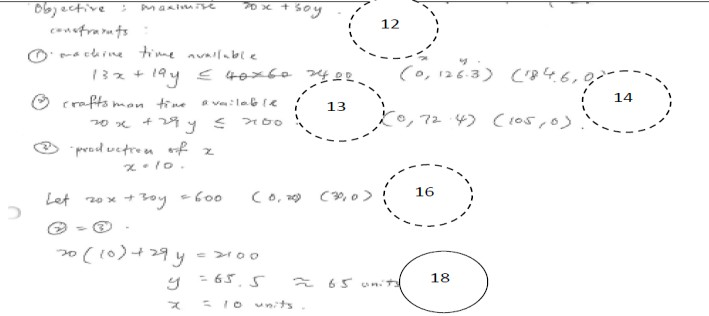 Objective : maximise 20x + 30y . 12
constraints :
① machine time available
13x + 19y ≤ 40×60 2400 (0, 126.3) (184.6, 0) x y
② craftsman time available 13 14
20x + 29y ≤ 2100 (0, 72.4) (105, 0) .
③ production of x
x = 10 .
Let 20x + 30y = 600 (0, 20) (30, 0) 16
② = ③ .
20(10) + 29y = 2100
y = 65.5 ≈ 65 units 18
x = 10 units .